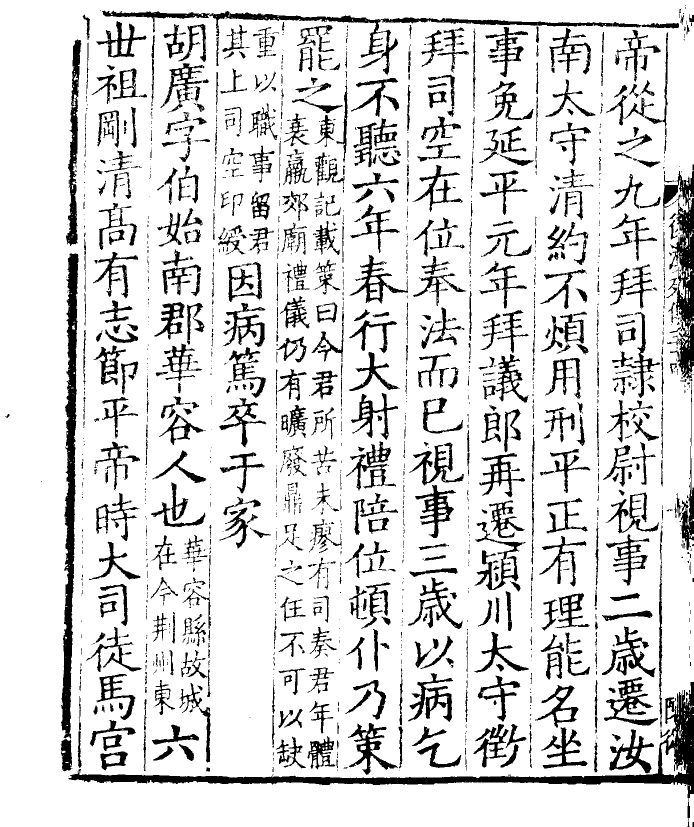 帝從之九年拜司隷校尉視事二歲遷汝
南太守清約不煩用刑平正有理能名坐
事免延平元年拜議郎再遷潁川太守徵
拜司空在位奉法而已視事三歲以病乞
身不聽六年春行大射禮陪位頓仆乃策
罷之東觀記載策曰今君所苦未瘳有司奏君年體
衰羸郊廟禮儀仍有曠廢鼎足之任不可以缺
重以職事留君
其上司空印綬因病篤卒于家
胡廣字伯始南郡華容人也華容縣故城
在今荆州東六
世祖剛清髙有志節平帝時大司徒馬宫